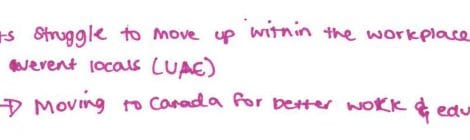 ts struggle to move up within the workplace
werent locals (UAE)
→ Moving to Canada for better work & edu